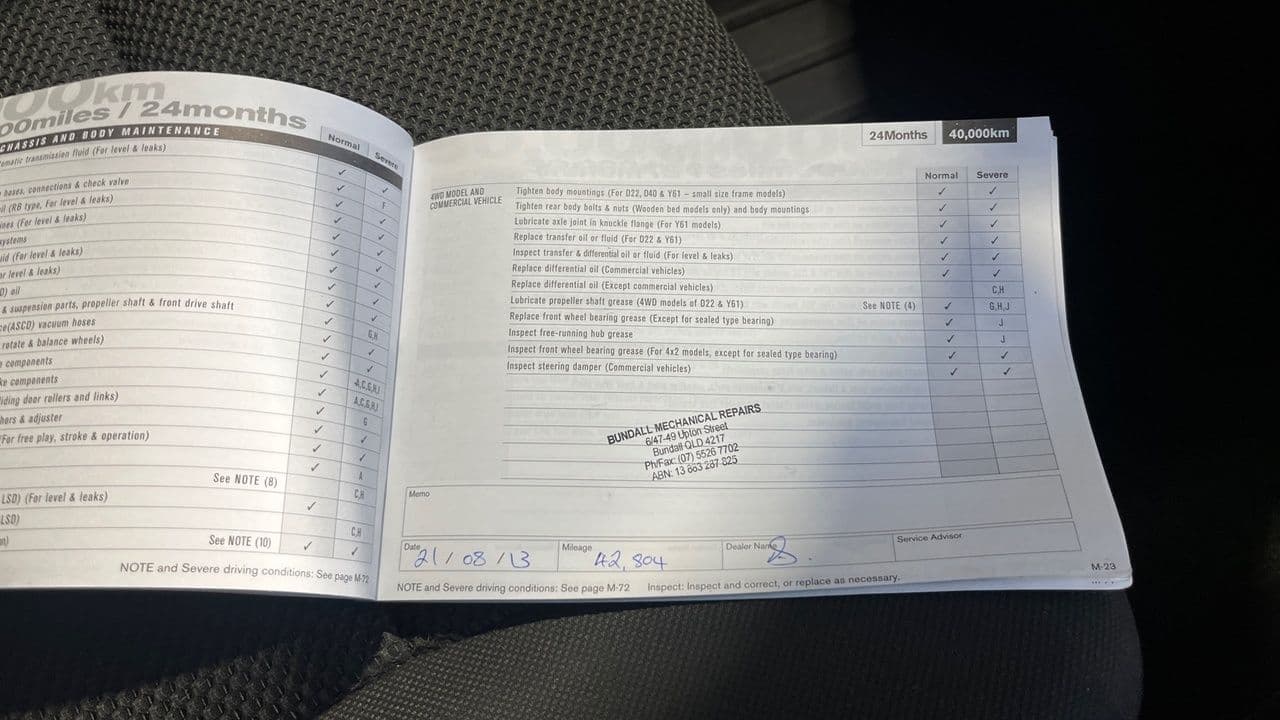 00km
00miles / 24months
CHASSIS AND BODY MAINTENANCE
Normal Severe
matic transmission fluid (For level & leaks) ✓ ✓
hoses, connections & check valve ✓ F
il (RB type, For level & leaks) ✓ ✓
ines (For level & leaks) ✓ ✓
systems ✓ ✓
uid (For level & leaks) ✓ ✓
or level & leaks) ✓ ✓
D) oil
& suspension parts, propeller shaft & front drive shaft ✓ G,H
ce(ASCD) vacuum hoses ✓ ✓
rotate & balance wheels) ✓ ✓
components ✓ A,C,G,H,J
ke components ✓ A,C,G,H,J
liding door rollers and links) ✓ G
hors & adjuster ✓ ✓
For free play, stroke & operation) ✓ ✓
A
See NOTE (8) C,H
LSD) (For level & leaks) ✓
LSD) C,H
See NOTE (10) ✓ ✓
NOTE and Severe driving conditions: See page M-72
24Months 40,000km
Normal Severe
4WD MODEL AND
COMMERCIAL VEHICLE
Tighten body mountings (For D22, D40 & Y61 – small size frame models) ✓ ✓
Tighten rear body bolts & nuts (Wooden bed models only) and body mountings ✓ ✓
Lubricate axle joint in knuckle flange (For Y61 models) ✓ ✓
Replace transfer oil or fluid (For D22 & Y61) ✓ ✓
Inspect transfer & differential oil or fluid (For level & leaks) ✓ ✓
Replace differential oil (Commercial vehicles) ✓ ✓
Replace differential oil (Except commercial vehicles) C,H
Lubricate propeller shaft grease (4WD models of D22 & Y61) See NOTE (4) ✓ G,H,J
Replace front wheel bearing grease (Except for sealed type bearing) ✓ J
Inspect free-running hub grease ✓ J
Inspect front wheel bearing grease (For 4x2 models, except for sealed type bearing) ✓ ✓
Inspect steering damper (Commercial vehicles) ✓ ✓
BUNDALL MECHANICAL REPAIRS
6/47-49 Upton Street
Bundall QLD 4217
Ph/Fax: (07) 5526 7702
ABN: 13 863 287 825
Memo
Date 21/08/13 Mileage 42,804 Dealer Name Service Advisor
NOTE and Severe driving conditions: See page M-72 Inspect: Inspect and correct, or replace as necessary.
M-23